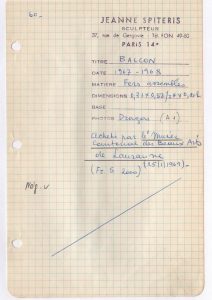 60-
JEANNE SPITERIS
SCULPTEUR
37, rue de Gergovie Tél. FON 49-60
PARIS 14e
TITRE BALCON
DATE 1967-1968
MATIERE Fers assemblés
DIMENSIONS
BASE
PHOTOS Dragon (A 1)
Acheté par le Musée
Cantonal des Beaux Arts
de Lausanne
(Fr S 2000)
Nég.